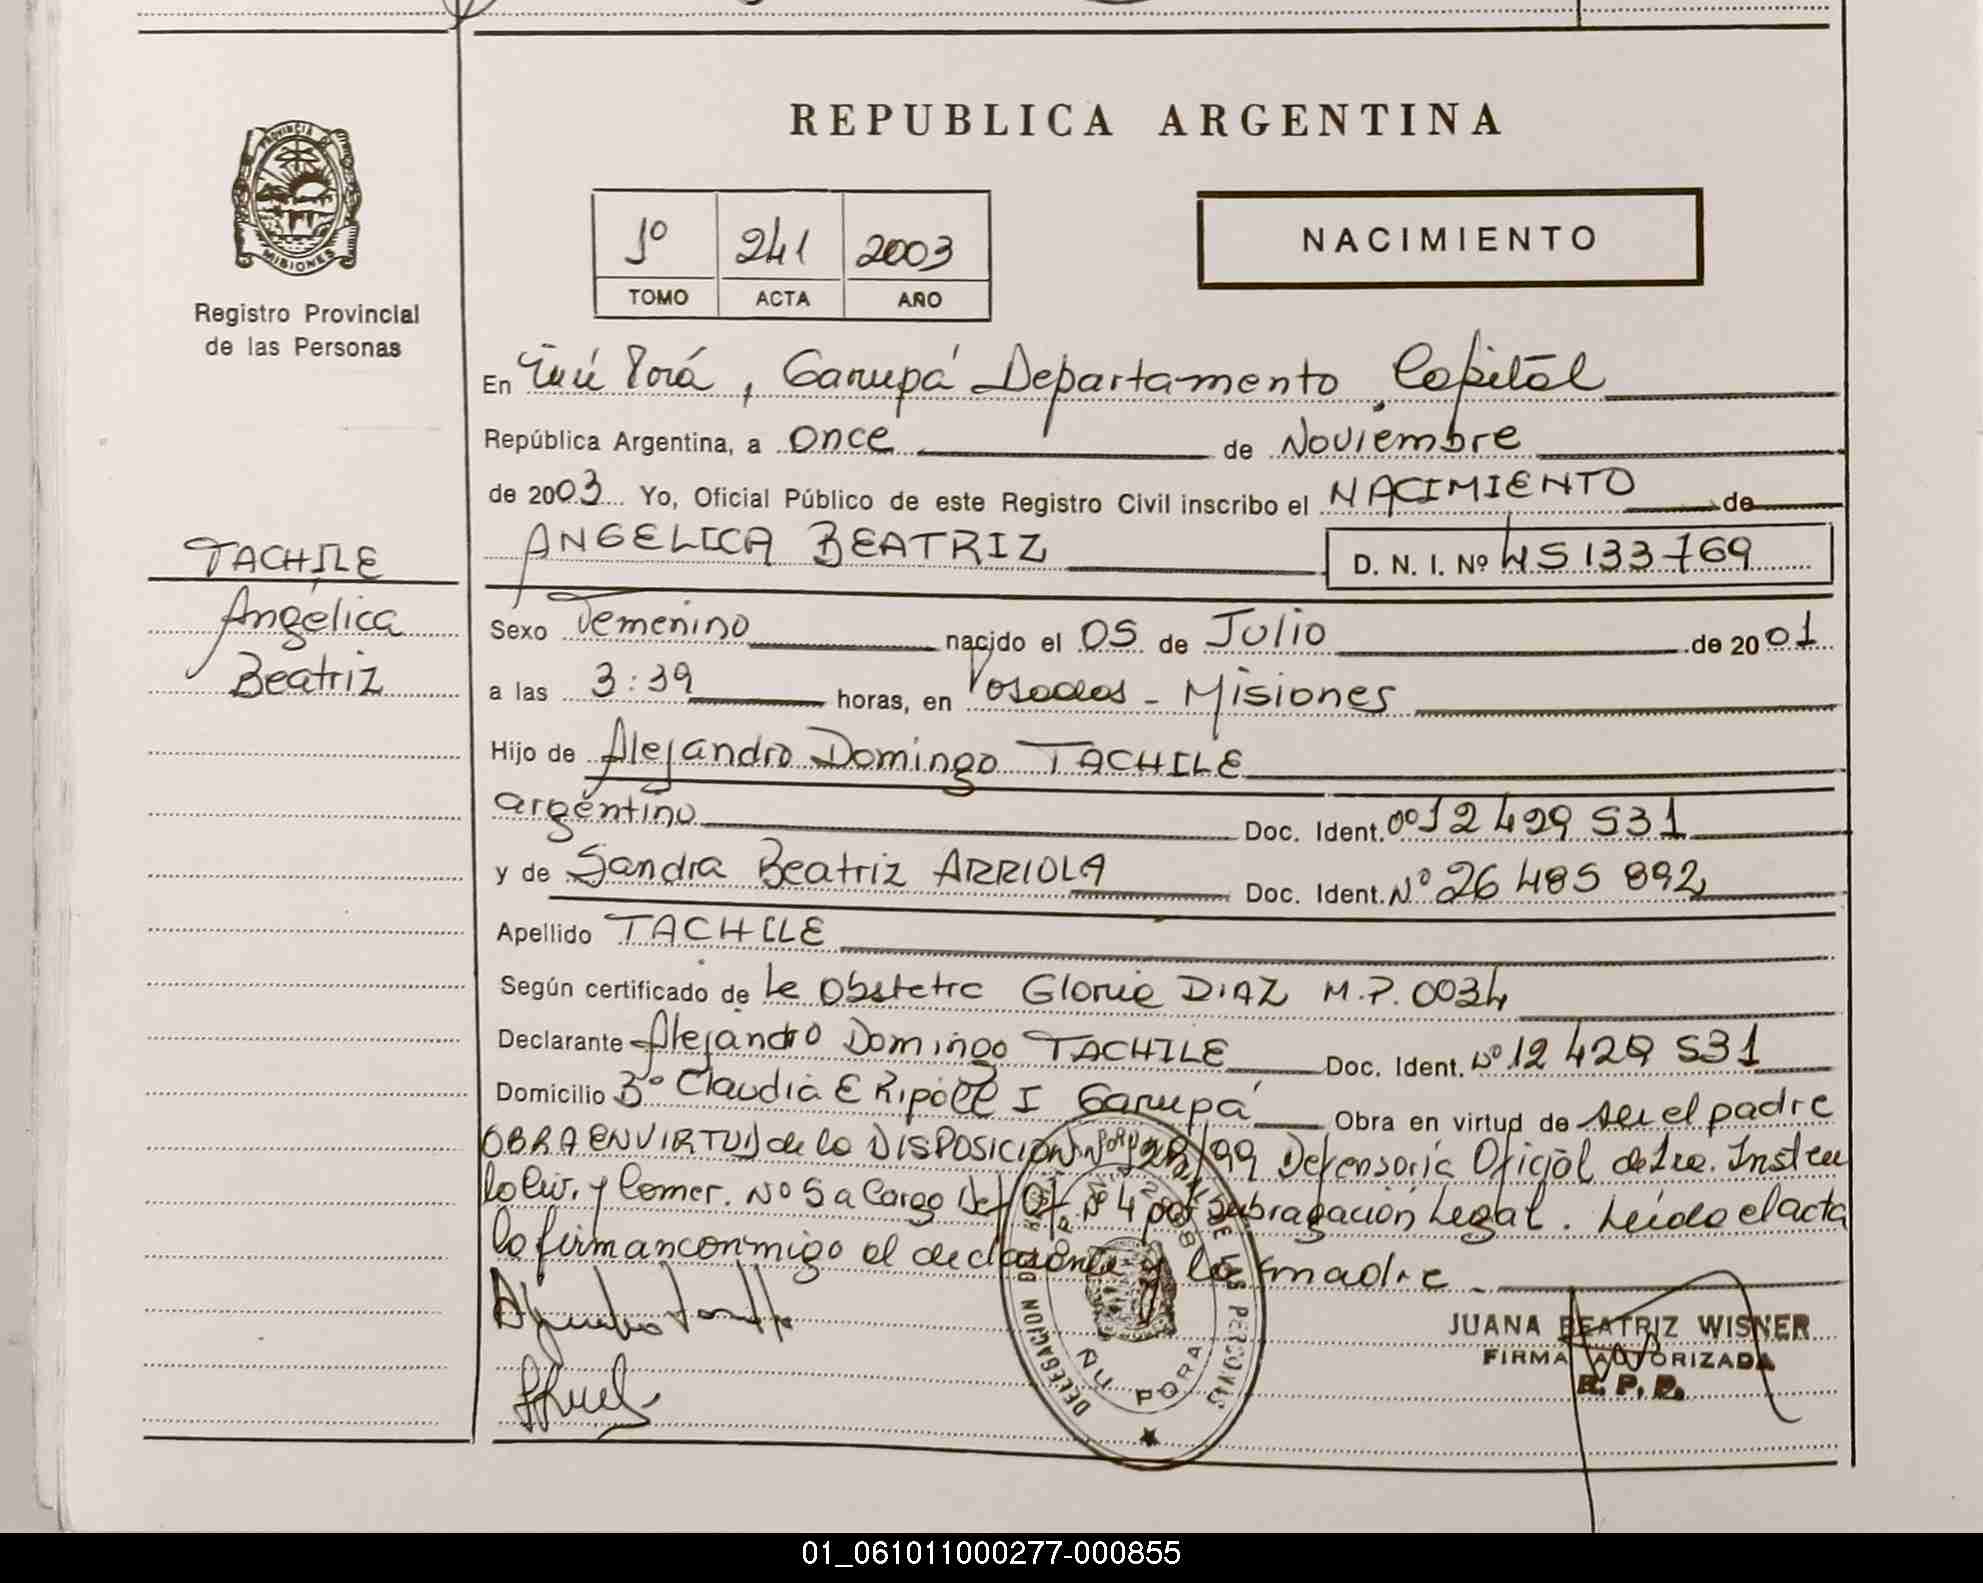 REPUBLICA ARGENTINA
PROVINCIA DE
MISIONES
Registro Provincial
de las Personas
1º 241 2003
TOMO ACTA AÑO
NACIMIENTO
En Ñú Porá, Garupá Departamento Capital
República Argentina, a once de Noviembre
de 2003 Yo, Oficial Público de este Registro Civil inscribo el NACIMIENTO de
TACHILE
Angélica
Beatriz
ANGELICA BEATRIZ D. N. I. Nº 45 133 769
Sexo Femenino nacido el 05 de Julio de 2001
a las 3:39 horas, en Posadas - Misiones
Hijo de Alejandro Domingo TACHILE
argentino Doc. Ident. Nº 12 429 531
y de Sandra Beatriz ARRIOLA Doc. Ident. Nº 26 485 892
Apellido TACHILE
Según certificado de la Obstetra Gloria DIAZ M.P. 0034
Declarante Alejandro Domingo TACHILE Doc. Ident. Nº 12 429 531
Domicilio Bº Claudia E Ripoll I Garupá Obra en virtud de ser el padre
OBRA EN VIRTUD de la DISPOSICION Nº /99 Defensoría Oficial de 1ra. Instan
Civ. y Comer. Nº 5 a Cargo Def Of Nº 4 por Subragación Legal. Leída el acta
la firman conmigo el declarante y la madre
DELEGACION DE LAS PERSONAS
ÑU PORA
JUANA BEATRIZ WISNER
FIRMA AUTORIZADA
R. P. P.
01_061011000277-000855